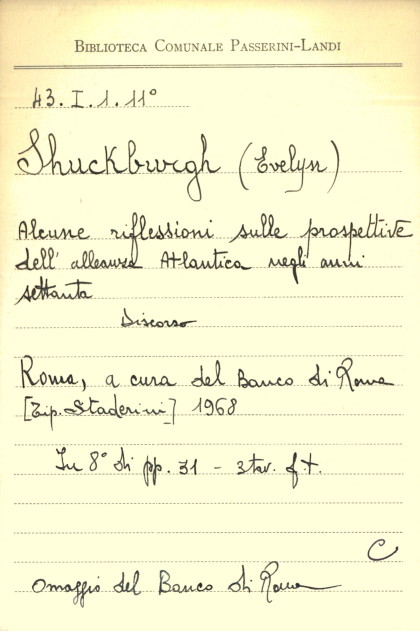 BIBLIOTECA COMUNALE PASSERINI-LANDI
43. I. 1. 11°
Shuckburgh (Evelyn)
Alcune riflessioni sulle prospettive
dell' alleanza Atlantica negli anni
settanta
Discorso
Roma, a cura del Banco di Roma
[Tip. Staderini] 1968
In 8° di pp. 31 - 3 tav. f.t.
C
Omaggio del Banco di Roma